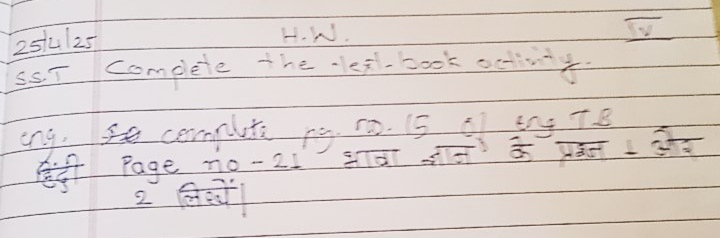 25/4/25 H.W. IV
S.S.T Complete the text-book activity.
eng. complete pg. no. 15 of eng TB
हिंदी Page no - 21 भाषा ज्ञान के प्रश्न 1 और
2 लिखें|